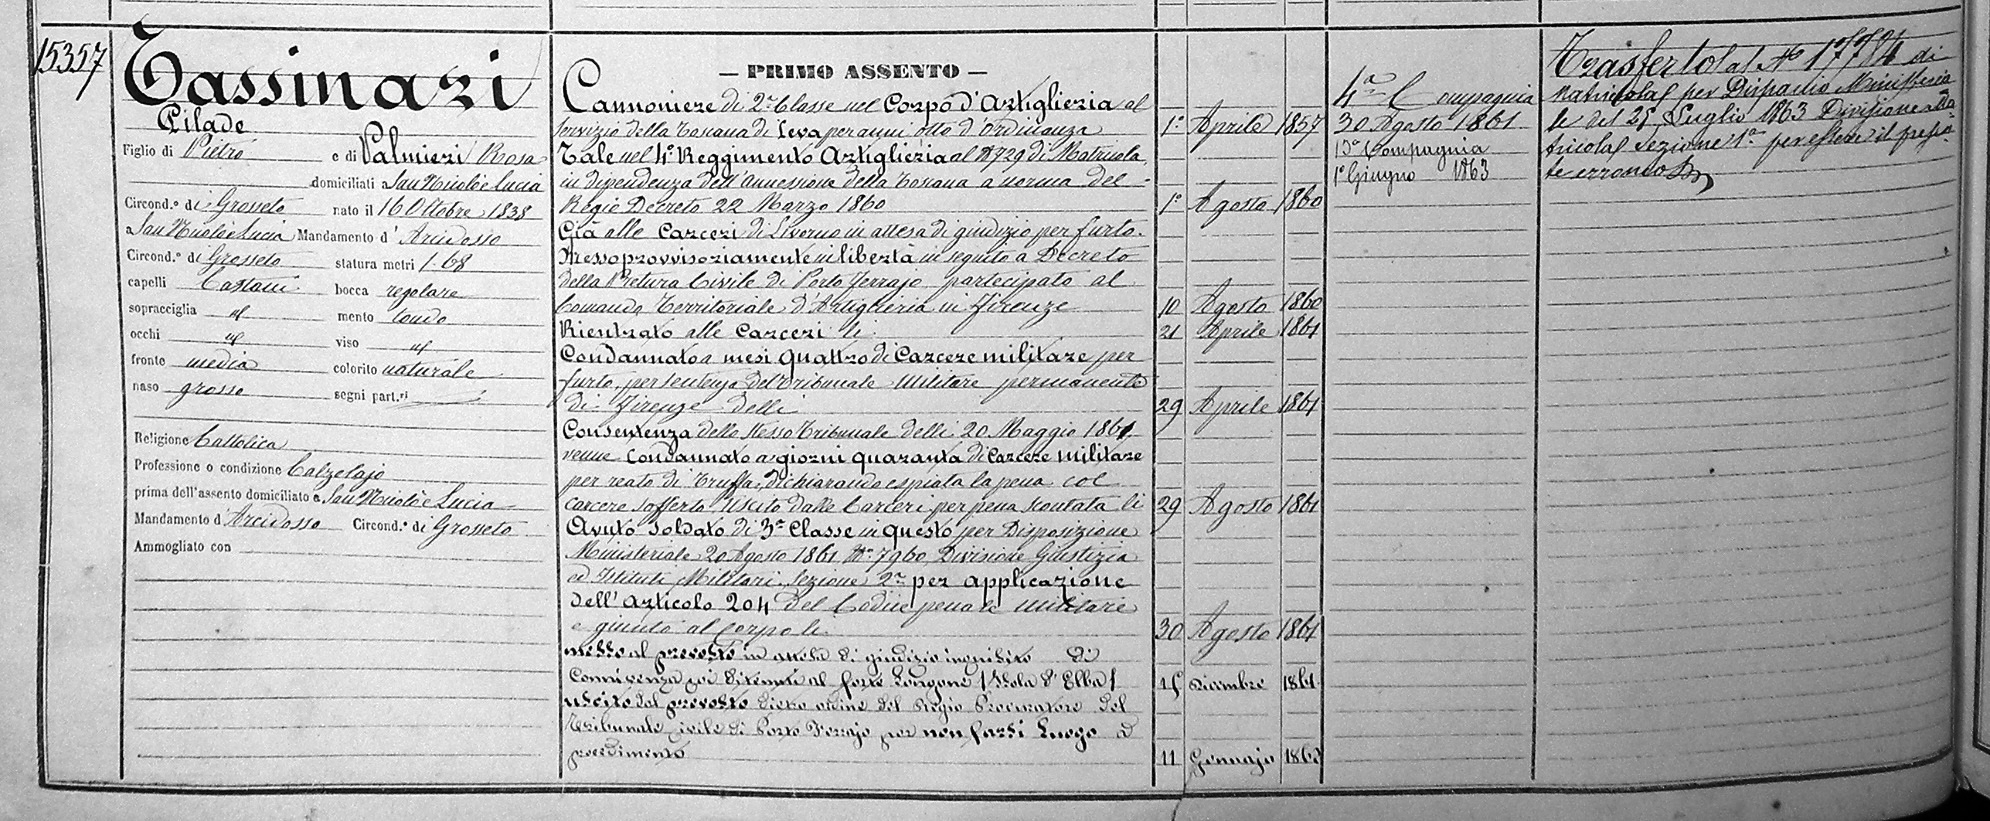 15357
Tassinari
Pilade
Figlio di Pietro e di Palmieri Rosa
domiciliati a San Nicolò e Lucia
Circond.º di Grosseto nato il 16 Ottobre 1838
a San Nicolò e Lucia Mandamento d' Arcidosso
Circond.º di Grosseto statura metri 1.68
capelli Castani bocca regolare
sopracciglia id mento tondo
occhi id viso id
fronte media colorito naturale
naso grosso segni part.ri
Religione Cattolica
Professione o condizione Calzolajo
prima dell'assento domiciliato a San Nicolò e Lucia
Mandamento d' Arcidosso Circond.º di Grosseto
Ammogliato con
— PRIMO ASSENTO —
Cannoniere di 2ª Classe nel Corpo d'Artiglieria al
servizio della Toscana di Leva per anni otto d'Ordinanza 1º Aprile 1857
Tale nel 4º Reggimento Artiglieria al Nº 729 di Matricola
in dipendenza dell'annessione della Toscana a norma del
Regio Decreto 22 Marzo 1860 1º Agosto 1860
Già alle Carceri di Livorno in attesa di giudizio per furto.
Messo provvisoriamente in libertà in seguito a Decreto
della Pretura Civile di Porto Ferrajo partecipato al
Comando Territoriale d'Artiglieria in Firenze 10 Agosto 1860
Rientrato alle Carceri li 21 Aprile 1861
Condannato a mesi quattro di Carcere militare per
furto, per sentenza del Tribunale Militare permanente
di Firenze delli 29 Aprile 1861
Con sentenza dello stesso Tribunale delli 20 Maggio 1861
venne Condannato a giorni quaranta di Carcere militare
per reato di Truffa, dichiarando espiata la pena col
carcere sofferto Uscito dalle Carceri per pena scontata li 29 Agosto 1861
Avuto Soldato di 3ª Classe in questo per Disposizione
Ministeriale 20 Agosto 1861 Nº 7960 Divisione Giustizia
ed Istituti Militari, Sezione 2ª per applicazione
dell'Articolo 204 del Codice penale militare
e giunto al Corpo li 30 Agosto 1861
messo al prevosto in attesa di giudizio inquisito di
Connivenza coi detenuti al forte Longone (Isola d'Elba) 15 Dicembre 1861
uscito dal prevosto dietro ordine del Regio Procuratore del
Tribunale Civile di Porto Ferrajo per non farsi Luogo a
procedimento 11 Gennajo 1862
4ª Compagnia
30 Agosto 1861
13ª Compagnia
1º Giugno 1863
Trasferto al Nº 17784 di
Matricola per Dispaccio Ministeria
le del 25 Luglio 1863 Divisione
Matricola Sezione 1ª per essere il presen
te erroneo